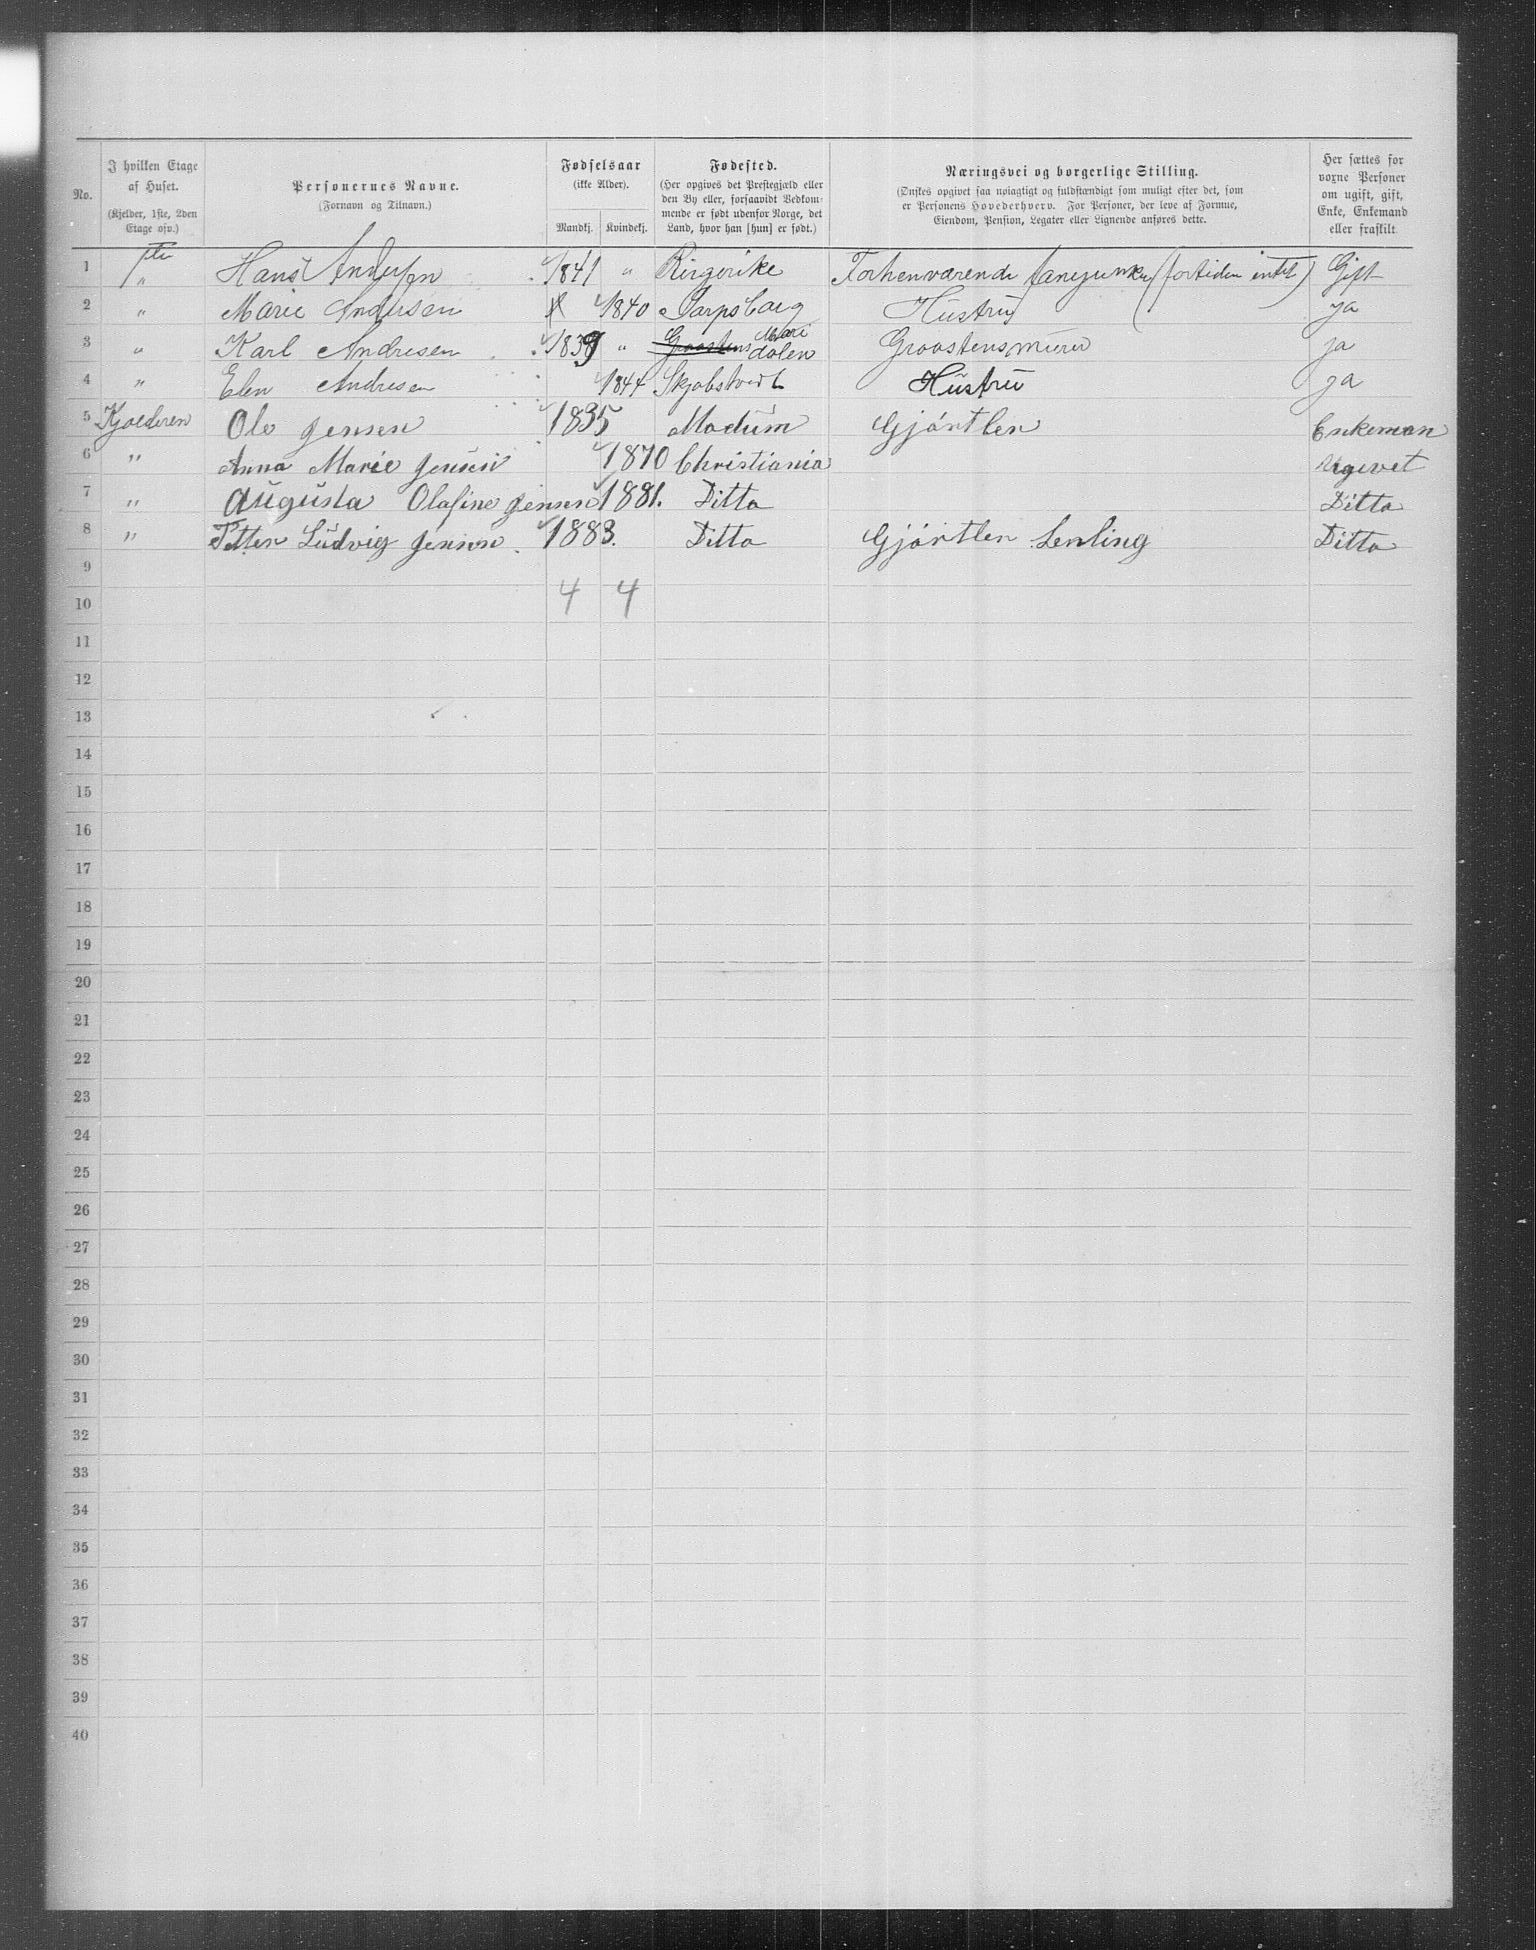 No. | I hvilken Etage af Huset. (Kjelder, 1ste, 2den Etage osv.) | Personernes Navne. (Fornavn og Tilnavn.) | Fødselsaar (ikke Alder). Mandkj. | Kvindekj. | Fødested. (Her opgives det Prestegjæld eller den By eller, forsaavidt Vedkommende er født udenfor Norge, det Land, hvor han [hun] er født.) | Næringsvei og borgerlige Stilling. (Ønskes opgivet saa nøiagtigt og fuldstændigt som muligt efter det, som er Personens Hovederhverv. For Personer, der leve af Formue, Eiendom, Pension, Legater eller Lignende anføres dette.) | Her sættes for voxne Personer om ugift, gift, Enke, Enkemand eller fraskilt
1 | 1ste " | Hans Andersen | 1841 | " | Ringerike | Forhenværende fanejunker (fortiden intet) | Gift
2 | " | Marie Andersen | | 1840 | Sarpsborg | Hustru | ja
3 | " | Karl Andresen | 1839 | " | Maridalen | Graastensmurer | ja
4 | " | Elen Andresen | | 1844 | Skjebstvedt | Hustru | ja
5 | Kjælderen | Ole Jensen | 1835 | | Modum | Gjørtler | Enkeman
6 | " | Anna Marie Jensen | | 1870 | Christiania | | Ugivet
7 | " | Augusta Olafine Jensen | | 1881. | Ditto | | Ditto
8 | " | Petter Ludvig Jensen | 1883. | | Ditto | Gjørtler Lerling | Ditto
9
10 | | | 4 | 4
11
12
13
14
15
16
17
18
19
20
21
22
23
24
25
26
27
28
29
30
31
32
33
34
35
36
37
38
39
40